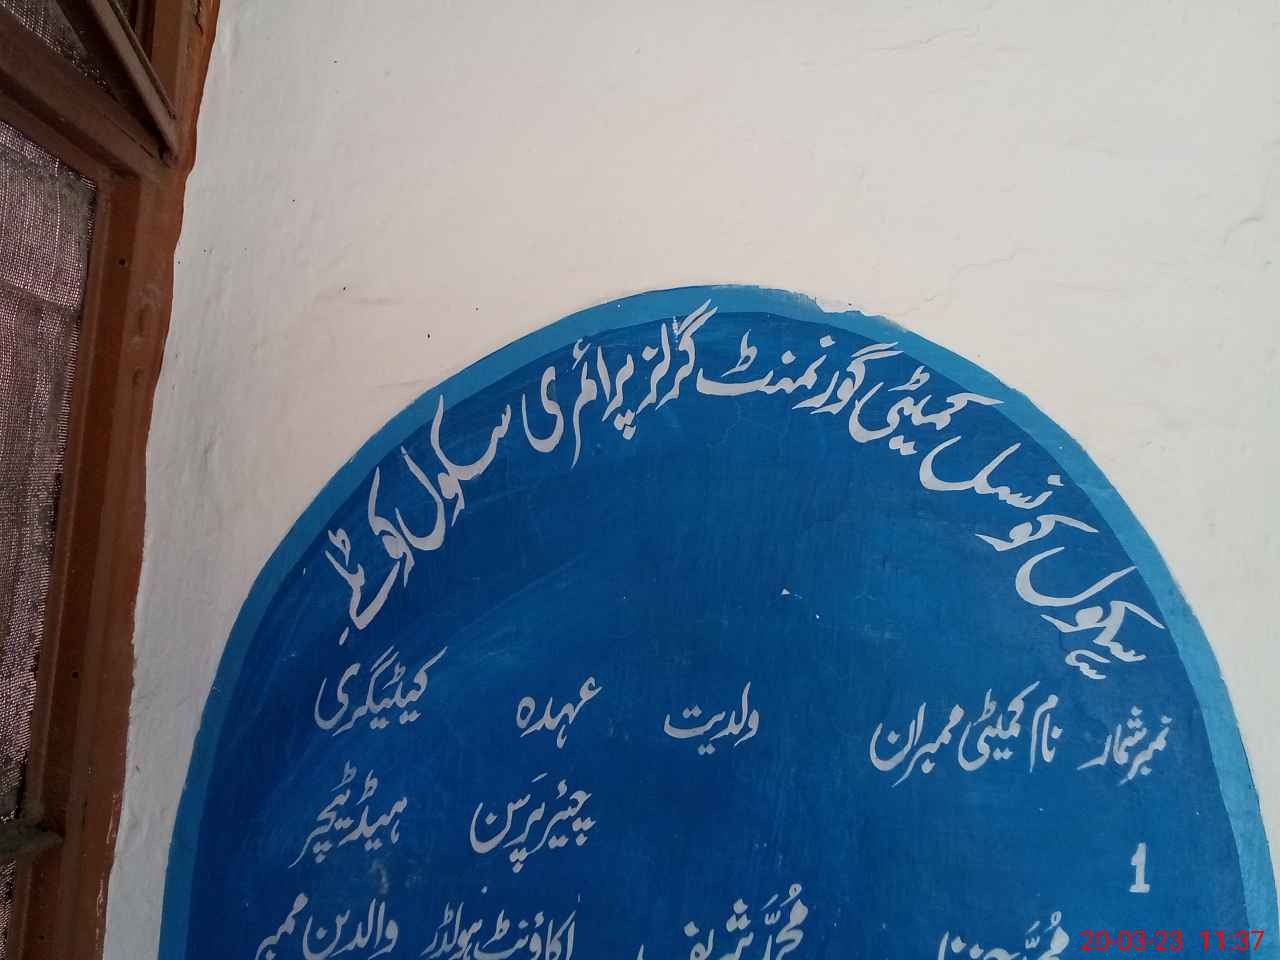 سکول کونسل کمیٹی گورنمنٹ گرلز پرائمری سکول کوٹلہ
نمبر شمار نام کمیٹی ممبران ولدیت عہدہ کیٹیگری
1 چئیر پرسن ہیڈ ٹیچر
محمد شریف اکاؤنٹ ہولڈر والدین ممبر
20-03-23 11:37